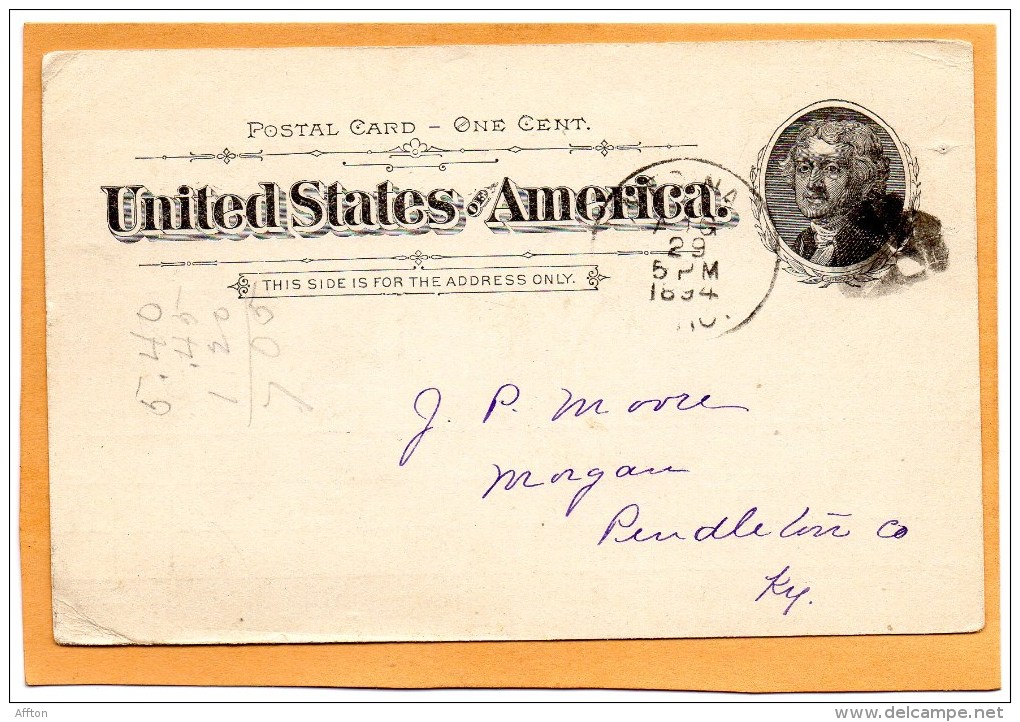 POSTAL CARD – ONE CENT.
United States OF America.
THIS SIDE IS FOR THE ADDRESS ONLY.
29
5 PM
1894
5.40
.45
1 20
7 05
J. P. Moore
Morgan
Pendleton Co
Ky.
Affton
delcampe.net